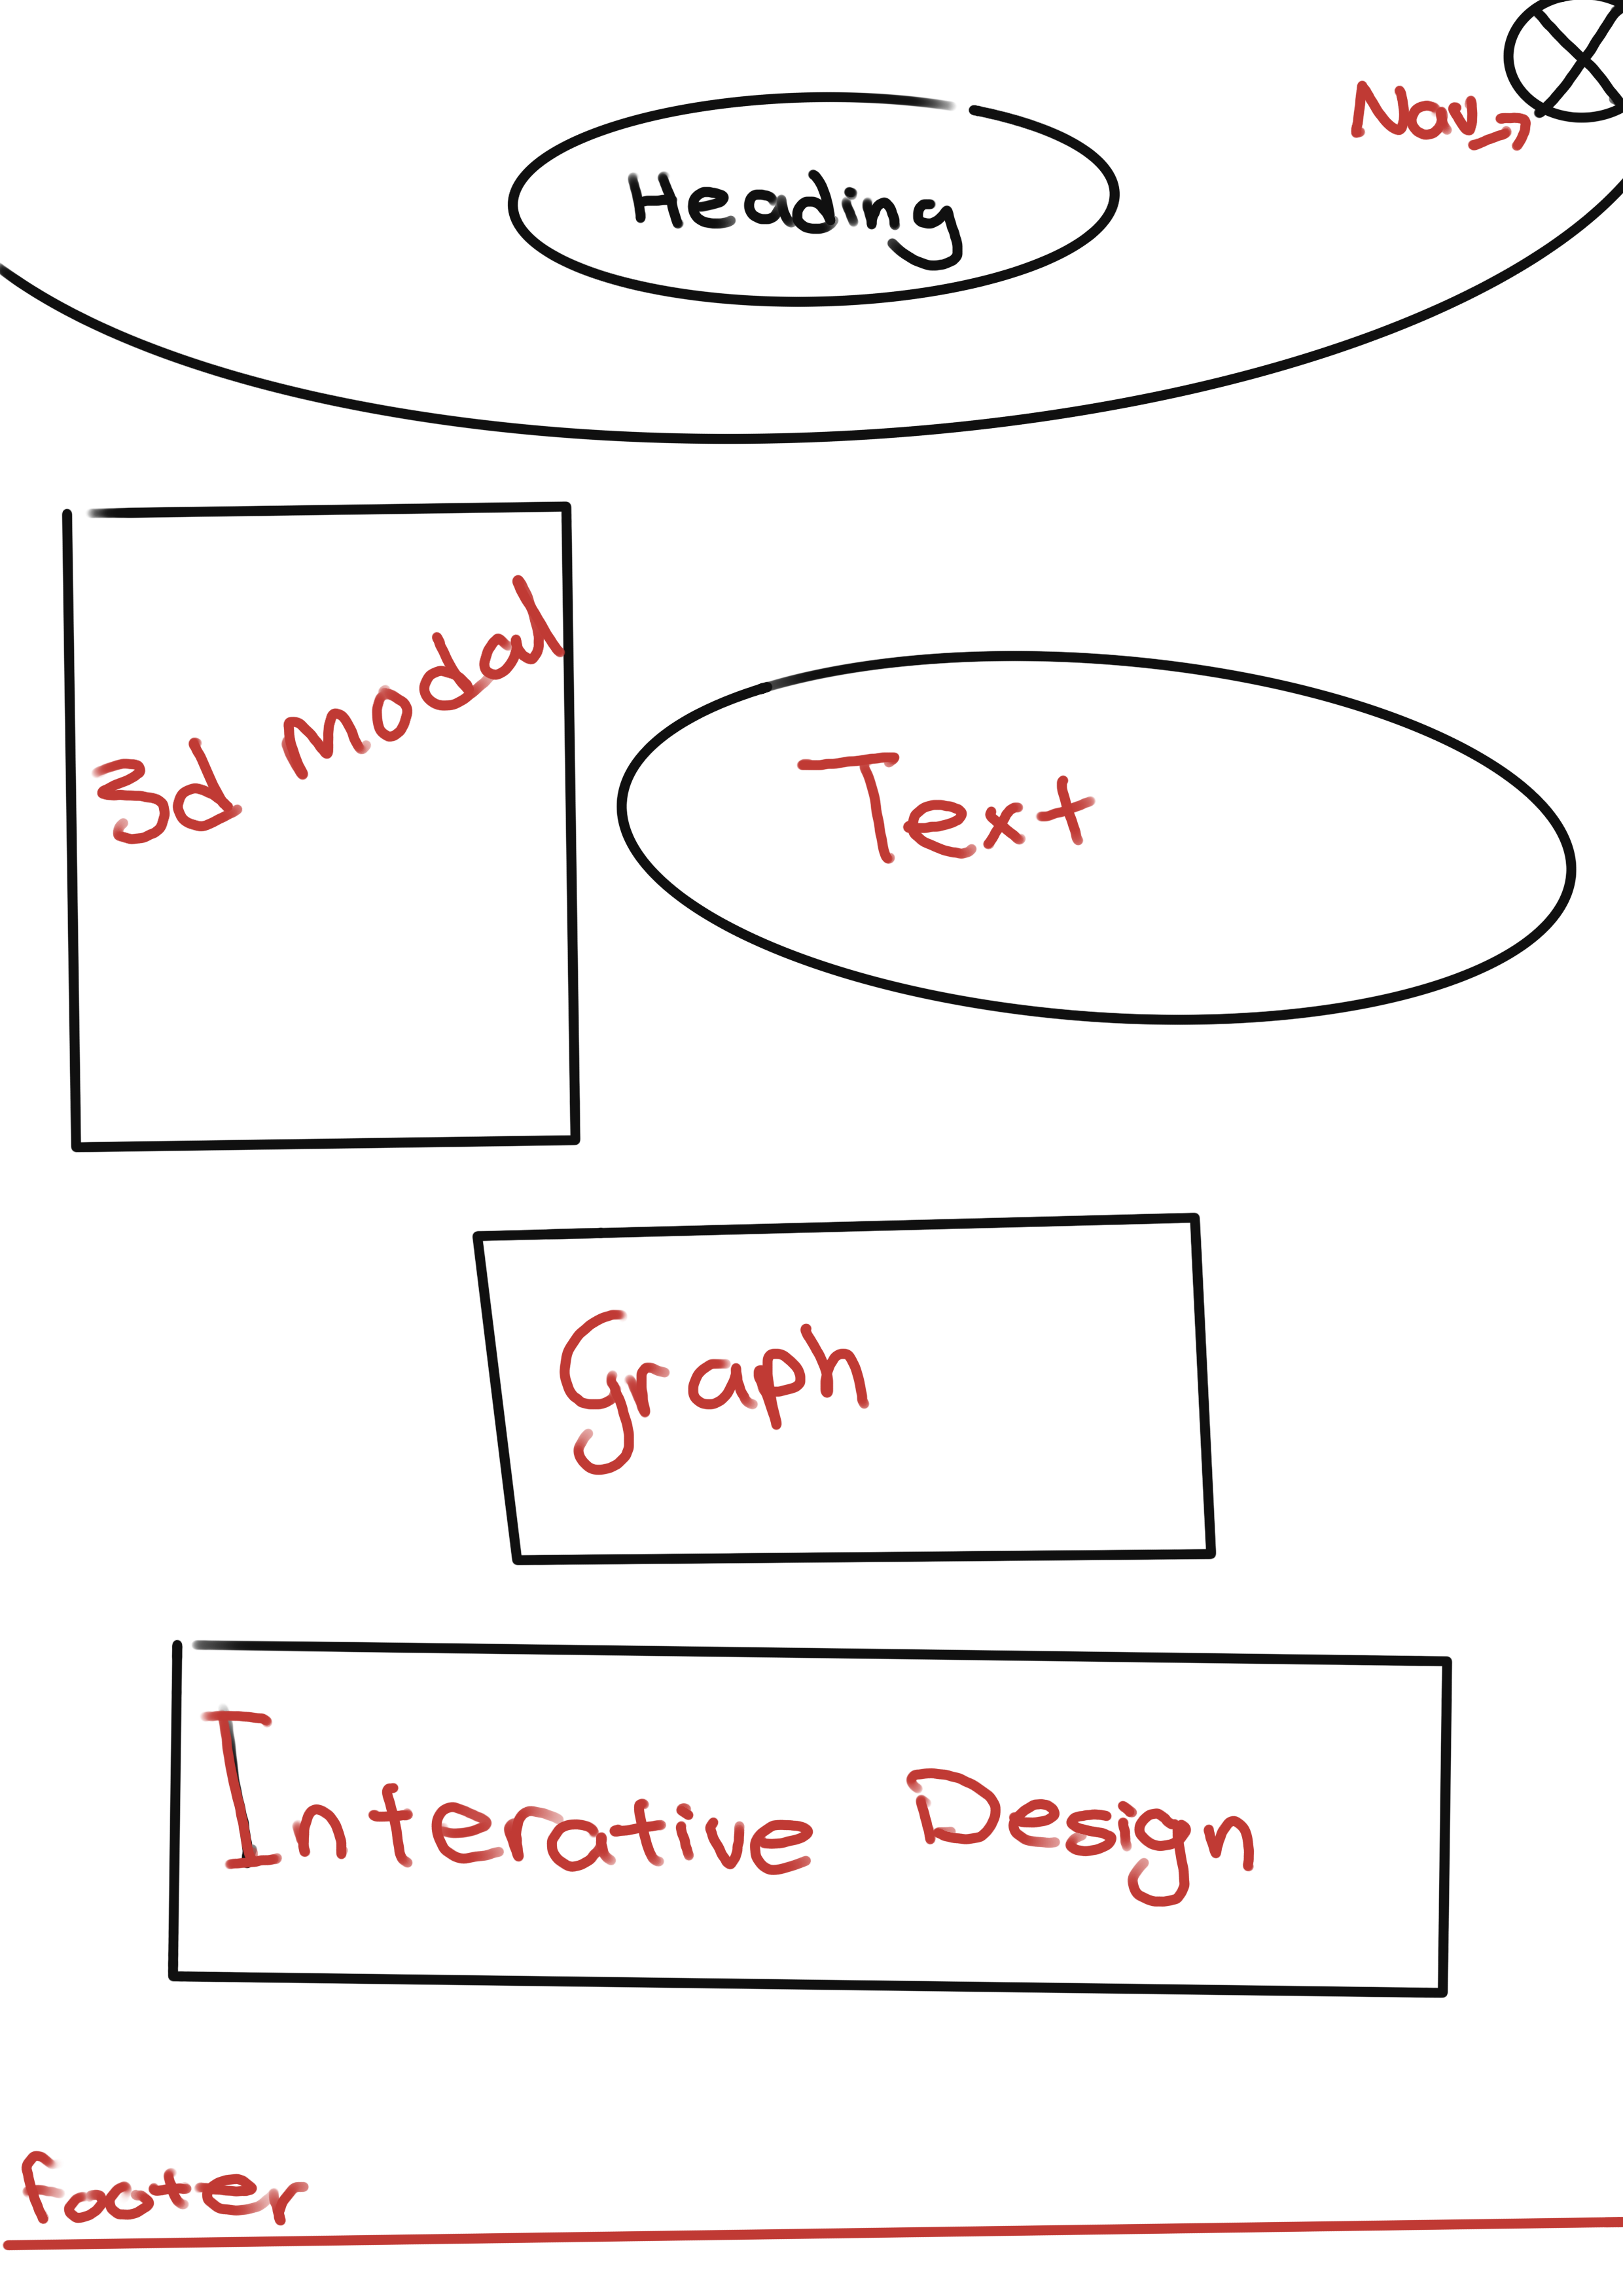 Nav
Heading
3d modal
Text
Graph
Interative Design
footer